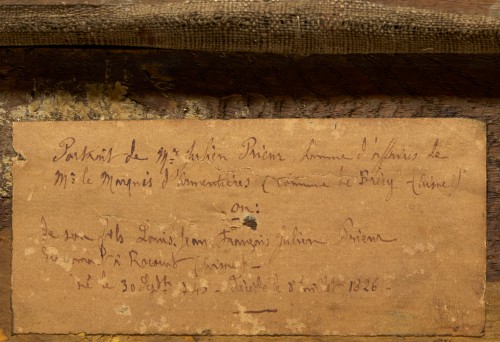 Portrait de Mr Julien Prieur homme d'affaires de
Mr le Marquis d'Armentières (commune de Brécy (Aisne)
ou:
de son fils Louis, Jean, François Julien Prieur
à Rocourt (Aisne) -
né le 30 - décédé le 8 1826 -